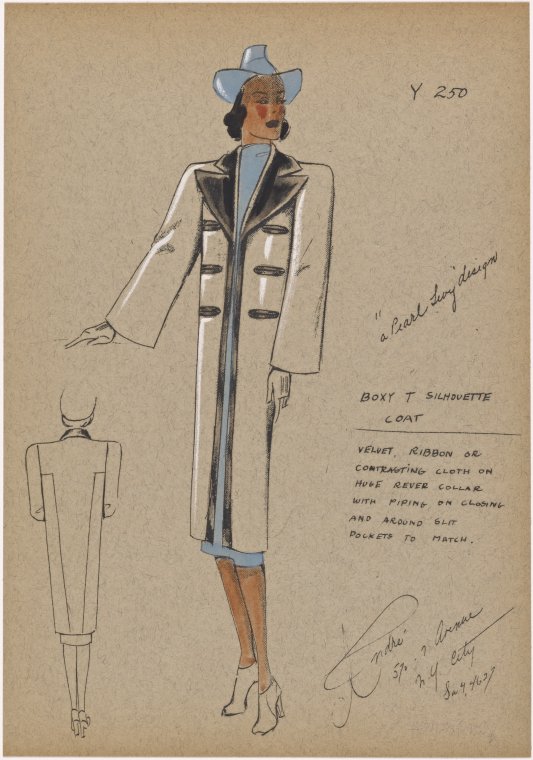 Y 250
"a Pearl Levy" design
BOXY T SILHOUETTE
COAT
VELVET, RIBBON OR
CONTRASTING CLOTH ON
HUGE REVER COLLAR
WITH PIPING ON CLOSING
AND AROUND SLIT
POCKETS TO MATCH.
André
570 7 Avenue
N.Y. City